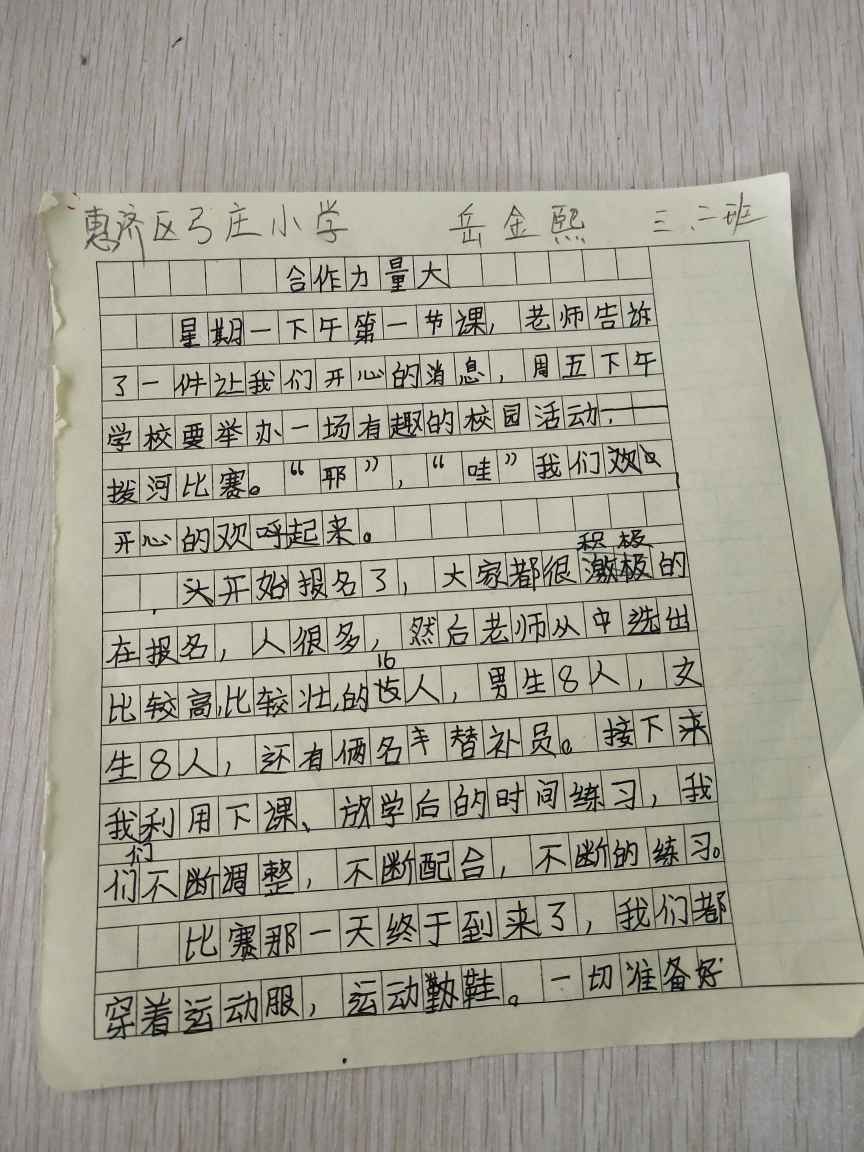 惠济区弓庄小学 岳金熙 三.二班
合作力量大
星期一下午第一节课，老师告诉
了一件让我们开心的消息，周五下午
学校要举办一场有趣的校园活动——
拔河比赛。“耶”，“哇”我们欢
开心的欢呼起来。
积极
头开始报名了，大家都很激极的
在报名，人很多，然后老师从中选出
16
比较高，比较壮，的人，男生8人，女
生8人，还有俩名替补员。接下来
我利用下课、放学后的时间练习，我
们
们不断调整，不断配合，不断的练习。
比赛那一天终于到来了，我们都
穿着运动服，运动鞋。一切准备好